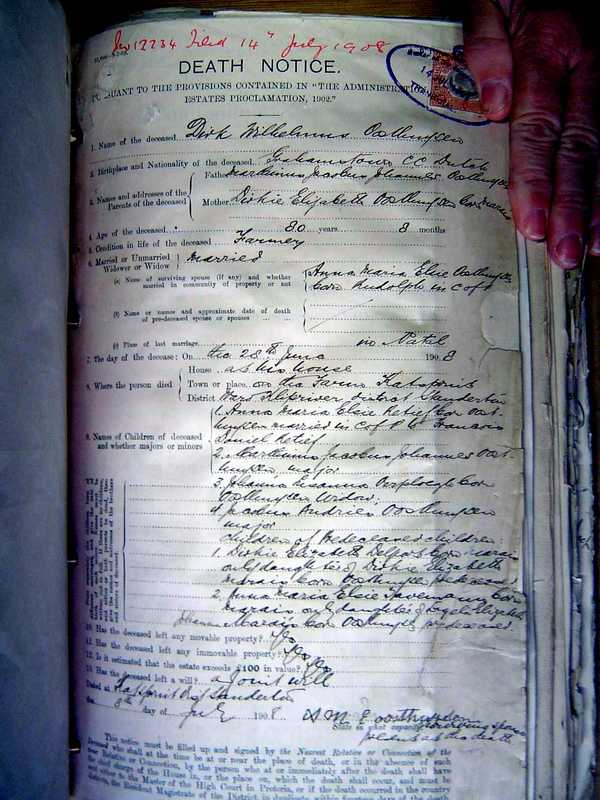 12234 Filed 14th July 1908
DEATH NOTICE.
PURSUANT TO THE PROVISIONS CONTAINED IN "THE ADMINISTRATION
ESTATES PROCLAMATION, 1902."
1. Name of the deceased Dirk Wilhelmus Oosthuyzen
2. Birthplace and Nationality of the deceased Grahamstown C C Dutch
3. Names and addresses of the Parents of the deceased
Father Marthinus Jacobus Johannes Oosthuyzen
Mother Dirkie Elizabeth Oosthuyzen born Marais
4. Age of the deceased 80 years 8 months
5. Condition in life of the deceased Farmer
6. Married or Unmarried Widower or Widow Married
(a) Name of surviving spouse (if any) and whether married in community of property or not
Anna Maria Elsie Oosthuyzen
born Rudolph in C of P
(b) Name or names and approximate date of death of pre-deceased spouse or spouses
(c) Place of last marriage in Natal
7. The day of the decease: On the 28th June 1908
8. Where the person died
House at his house
Town or place on the Farm Katspruit
District Ward Kliprivier, district Standerton
9. Names of Children of deceased and whether majors or minors
1. Anna Maria Elsie Retief born Oost-
huyzen married in C of P to Francois
Daniel Retief
2. Marthinus Jacobus Johannes Oost-
huyzen major
3. Johanna Susanna born
Oosthuyzen Widow;
4. Jacobus Andries Oosthuyzen
major
Children of Predeceased children:
1. Dirkie Elizabeth Delport born Marais
only daughter of Dirkie Elizabeth
Marais born Oosthuyzen predeceased
2. Anna Maria Elsie born
Marais only daughter of Elizabeth
Johanna Marais born Oosthuyzen predeceased
10. Has the deceased left any movable property? Yes
11. Has the deceased left any immovable property? Yes
12. Is it estimated that the estate exceeds £100 in value? Yes
13. Has the deceased left a will? a joint will
Dated at Katspruit Dist Standerton
the 8th day of July 1908
A. M. E. Oosthuyzen
State in what capacity surviving spouse
This notice must be filled up and signed by the Nearest Relative or Connection of the
Deceased who shall at the time be at or near the place of death, or in the absence of such
near Relative or Connection, by the person who at or immediately after the death shall have
the chief charge of the House in, or the place on, which the death shall occur, and must be
to the Master of the High Court in Pretoria, or if the death occurred in the country
Resident Magistrate of the District, in duplicate within fourteen days of the death